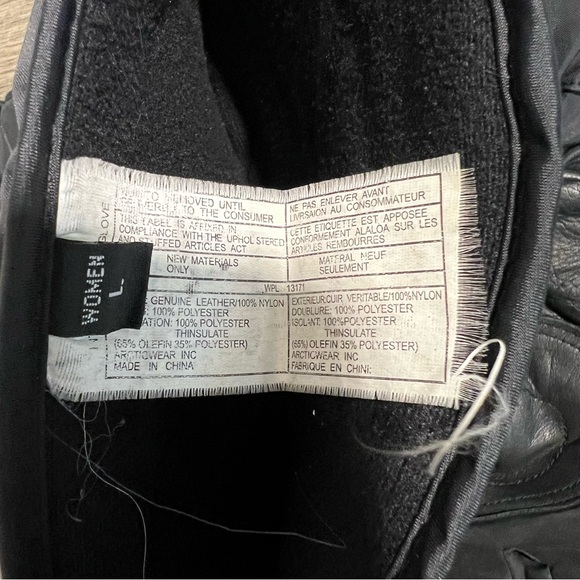 REMOVED UNTIL
TO THE CONSUMER
THIS LABEL IS AFFIXED IN
COMPLIANCE WITH THE UPHOLSTERED
AND STUFFED ARTICLES ACT
NEW MATERIALS
ONLY
NE PAS ENLEVER AVANT
LIVRAISON AU CONSOMMATEUR
CETTE ETIQUETTE EST APPOSEE
CONFORMEMENT ALALOA SUR LES
ARTICLES REMBOURRES
MATERAL NEUF
SEULEMENT
WPL 13171
GENUINE LEATHER/100%NYLON
100% POLYESTER
100% POLYESTER
THINSULATE
(65% OLEFIN 35% POLYESTER)
ARCTICWEAR INC
MADE IN CHINA
EXTERIEUR:CUIR VERITABLE/100%NYLON
DOUBLURE: 100% POLYESTER
ISOLANT: 100%POLYESTER
THINSULATE
(65% OLEFIN 35% POLYESTER)
ARCTICWEAR INC
FABRIQUE EN CHINE
WOMEN
L
GLOVE